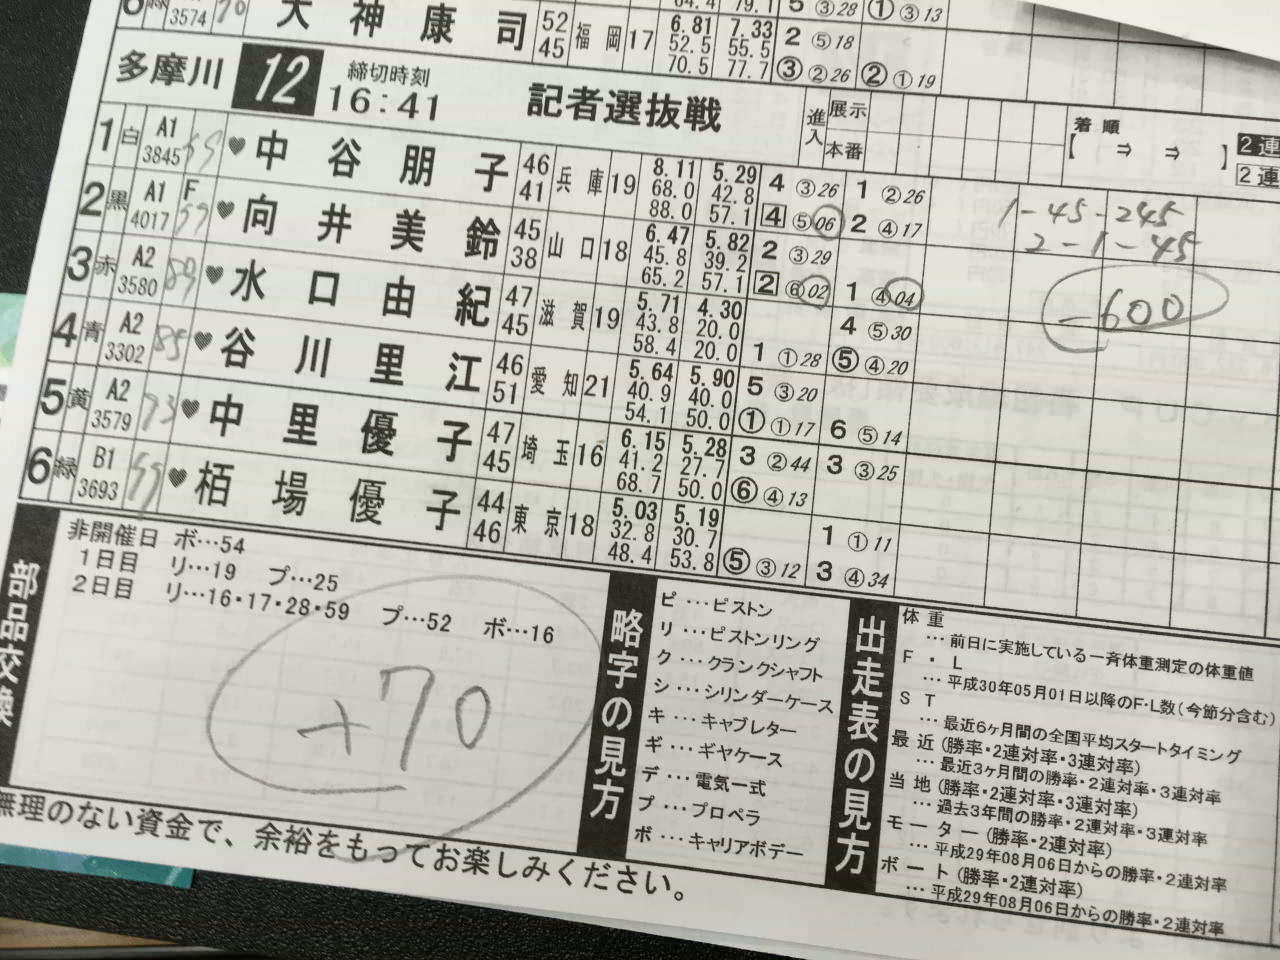 3574
大神康司 52 45 福岡 17 6.81 52.5 70.5 7.33 55.5 77.7 2 ⑤18 ③ ②26 ② ①19
5 ③28 ① ③13
多摩川 12 締切時刻 16:41 記者選抜戦 進入 展示 本番 着順 【 ⇒ ⇒ 】 2連 2連
1 白 A1 3845 59 ♥ 中谷朋子 46 41 兵庫 19 8.11 68.0 88.0 5.29 42.8 57.1 4 ③26 1 ②26 4 ⑤06 2 ④17
2 黒 A1 4017 F 57 ♥ 向井美鈴 45 38 山口 18 6.47 45.8 65.2 5.82 39.2 57.1 2 ③29 2 ⑥02 1 ④04
3 赤 A2 3580 ♥ 水口由紀 47 45 滋賀 19 5.71 43.8 58.4 4.30 20.0 20.0 4 ⑤30 1 ①28 ⑤ ④20
4 青 A2 3302 85 ♥ 谷川里江 46 51 愛知 21 5.64 40.9 54.1 5.90 40.0 50.0 5 ③20 ① ①17 6 ⑤14
5 黄 A2 3579 73 ♥ 中里優子 47 45 埼玉 16 6.15 41.2 68.7 5.28 27.7 50.0 3 ②44 3 ③25 ⑥ ④13
6 緑 B1 3693 59 ♥ 栢場優子 44 46 東京 18 5.03 32.8 48.4 5.19 30.7 53.8 1 ①11 ⑤ ③12 3 ④34
1-45-245
2-1-45
-600
部品交換
非開催日 ボ…54
1日目 リ…19 プ…25
2日目 リ…16・17・28・59 プ…52 ボ…16
+70
略字の見方
ピ…ピストン
リ…ピストンリング
ク…クランクシャフト
シ…シリンダーケース
キ…キャブレター
ギ…ギヤケース
デ…電気一式
プ…プロペラ
ボ…キャリアボデー
出走表の見方
体重
…前日に実施している一斉体重測定の体重値
F・L
…平成30年05月01日以降のF・L数(今節分含む)
ST
…最近6ヶ月間の全国平均スタートタイミング
最近(勝率・2連対率・3連対率)
…最近3ヶ月間の勝率・2連対率・3連対率
当地(勝率・2連対率・3連対率)
…過去3年間の勝率・2連対率・3連対率
モーター(勝率・2連対率)
…平成29年08月06日からの勝率・2連対率
ボート(勝率・2連対率)
…平成29年08月06日からの勝率・2連対率
無理のない資金で、余裕をもってお楽しみください。